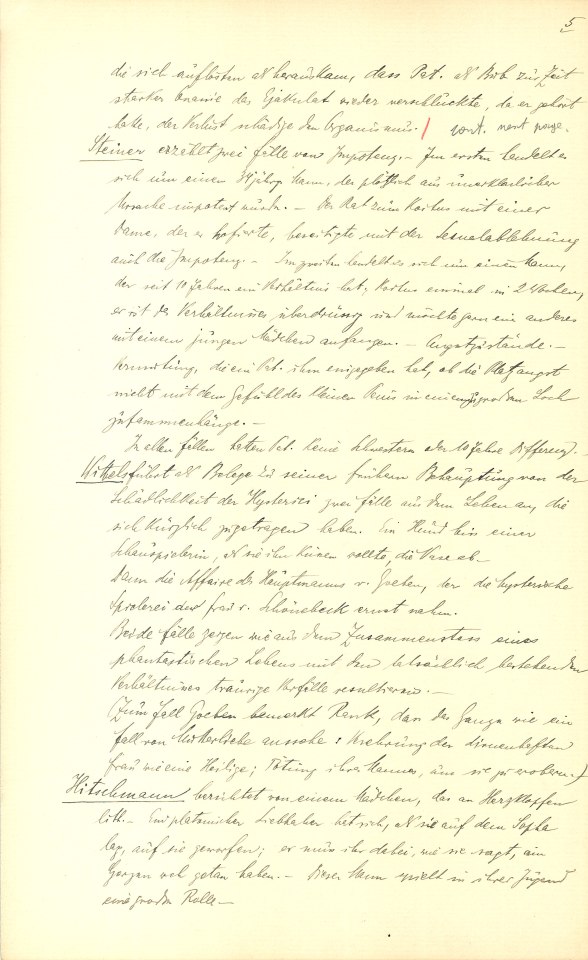 5
die sich auflösten als herauskam, dass Pat. als Bub zur Zeit
starker Onanie das Ejakulat wieder verschluckte, da er gehört
hatte, der Verlust schädige den Organismus. / cont. next page.
Steiner erzählt zwei Fälle von Impotenz. – Im ersten handelt es
sich um einen jähr. Mann, der plötzlich aus unerklärlicher
Ursache impotent wurde. – Der Rat zum Koitus mit einer
Dame, der er hofierte, beseitigte mit der Sexualablehnung
auch die Impotenz. – Im zweiten handelt es sich um einen Mann,
der seit 10 Jahren ein Verhältnis hat; Koitus einmal in 2 Wochen,
er ist des Verhältnisses überdrüssig und möchte gern ein anderes
mit einem jungen Mädchen anfangen. – Angstzustände. –
Vermutung, die ein Pat. ihm eingegeben hat, ob die Platzangst
nicht mit dem Gefühl des kleinen Penis in einem zu großen Loch
zusammenhänge. –
In allen Fällen hatten Pat. keine Schwestern oder 10 Jahre Differenz.
Wittels führt als Belege zu seiner frühern Behauptung von der
Schädlichkeit der Hysterie zwei Fälle aus dem Leben an, die
sich kürzlich zugetragen haben. Ein Hund biss einer
Schauspielerin, als sie ihn küssen wollte, die Nase ab –
Dann die Affaire des Hauptmanns v. Goeben, der die hysterische
Spielerei der Frau v. Schönebeck ernst nahm.
Beide Fälle zeigen wie aus dem Zusammenstoss eines
phantastischen Lebens mit den tatsächlich bestehenden
Verhältnissen traurige Vorfälle resultieren. –
(Zum Fall Goeben bemerkt Rank, dass das Ganze wie ein
Fall von Mutterliebe aussehe: Verehrung der dirnenhaften
Frau wie eine Heilige; Tötung ihres Mannes, um sie zu erobern.)
Hitschmann berichtet von einem Mädchen, das an Herzklopfen
litt. – Ein platonischer Liebhaber hat sich, als sie auf dem Sopha
lag, auf sie geworfen; er muss ihr dabei, wie sie sagt, am
Gorgon weh getan haben. – Dieser Mann spielt in ihrer Jugend
eine große Rolle –